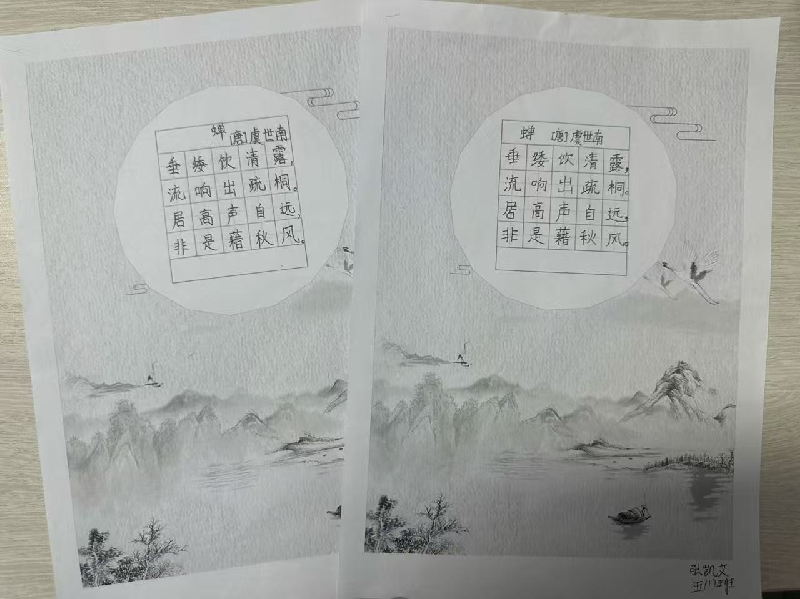 蝉 [唐]虞世南
垂緌饮清露，
流响出疏桐。
居高声自远，
非是藉秋风。
蝉 [唐]虞世南
垂緌饮清露，
流响出疏桐。
居高声自远，
非是藉秋风。
张凯文